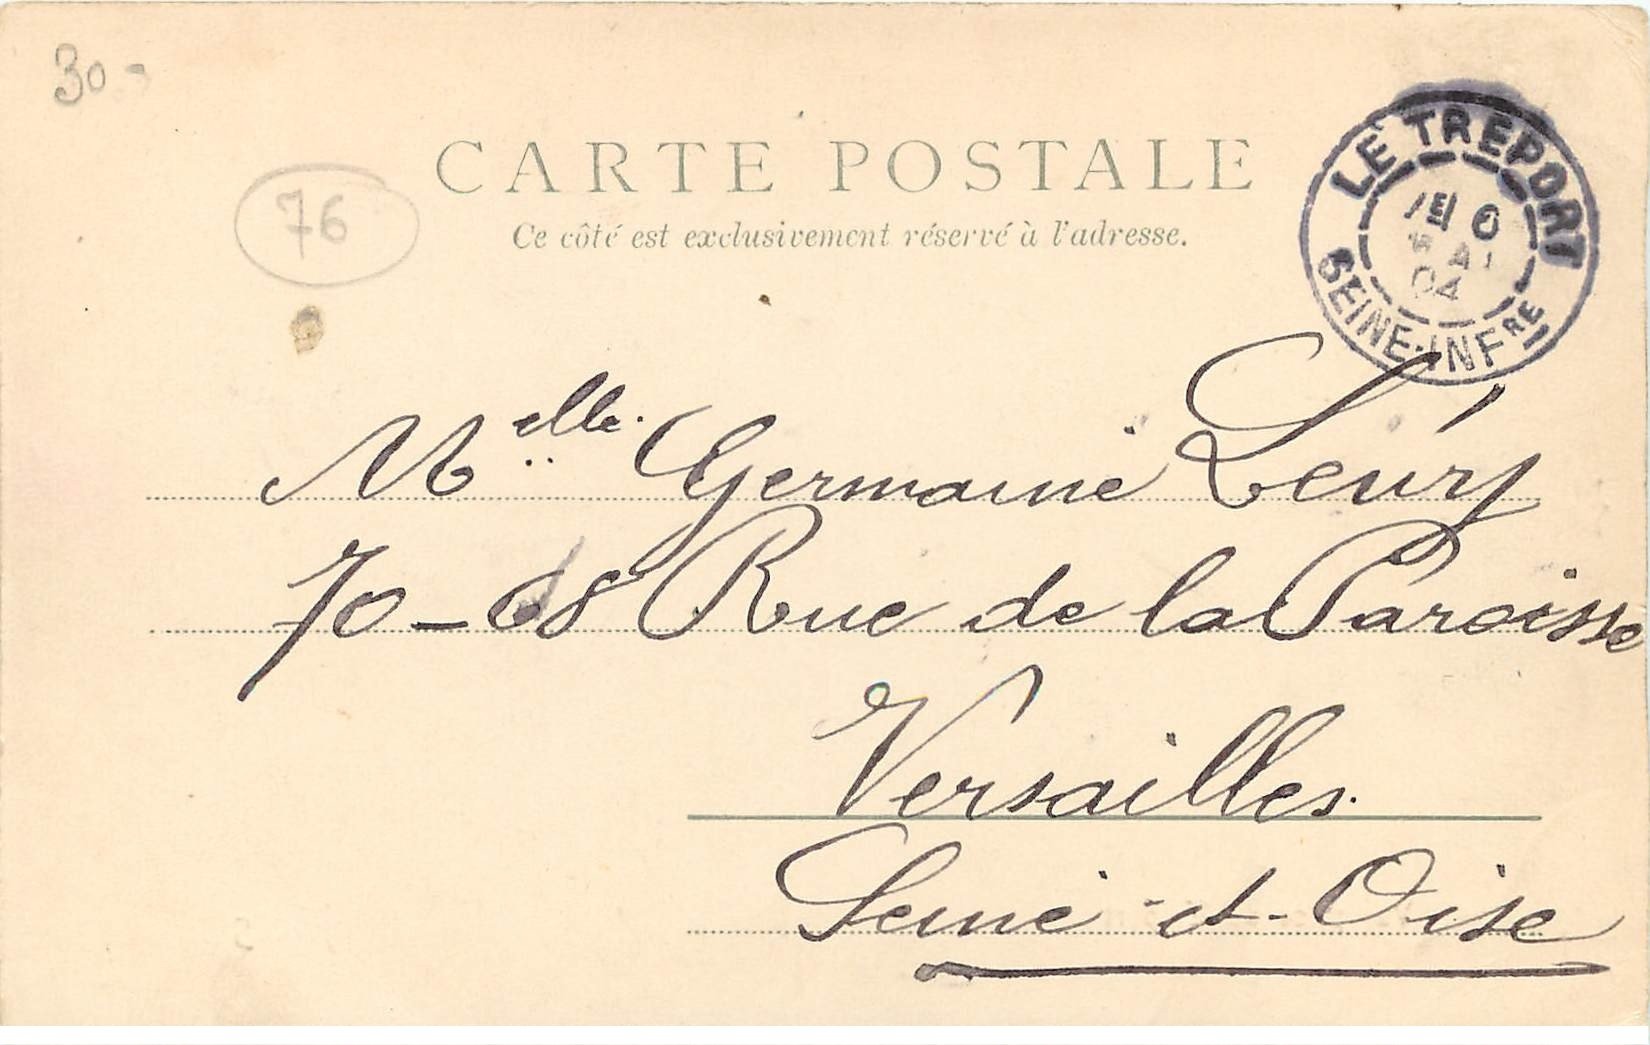 30-
CARTE POSTALE
76
Ce côté est exclusivement réservé à l'adresse.
LE TREPORT
6
04
SEINE-INFRE
Melle. Germaine Leury
70-68 Rue de la Paroisse
Versailles.
Seine-et-Oise